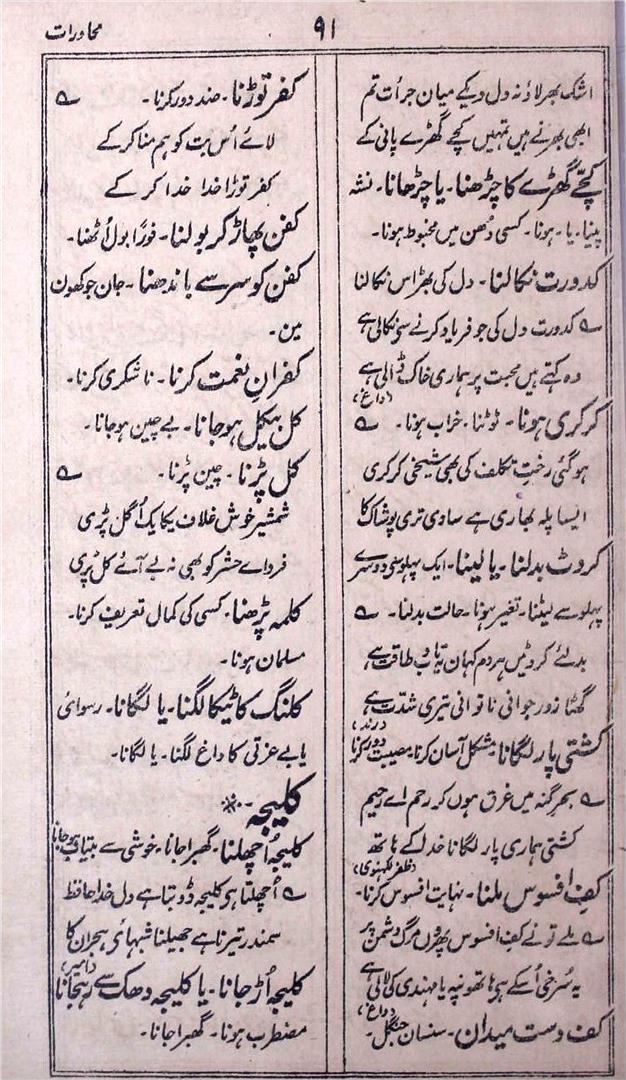 محاورات
۹۱
اشک بھر لاؤ نہ دل دیکے میاں جرأت تم
ابھی بھرنے ہیں تمہیں کچے گھڑے پانی کے
کچّے گھڑے کا چڑھنا۔ یا چڑھانا۔ نشہ
پینا۔ یا۔ ہونا۔ کسی دُھن میں مخبوط ہونا۔
کدورت نکالنا۔ دل کی بھڑاس نکالنا
ے کدورت دل کی جو فریاد کرنے سے نکالی ہے
وہ کہتے ہیں محبت پر ہماری خاک ڈالی ہے
(داغ)
کرکری ہونا۔ ٹوٹنا۔ خراب ہونا۔ ے
ہوگئی رختِ تکلف کی بھی شیخی کرکری
ایسا پلہ بھاری ہے سادی تری پوشاک کا
کروٹ بدلنا۔ یا لینا۔ ایک پہلو سے دوسرے
پہلو سے لیٹنا۔ تغیر ہونا۔ حالت بدلنا۔ ے
بدلے کروٹیں ہر دم کہاں یہ تاب و طاقت ہے
گھٹا زور جوانی ناتوانی تیری شدّت ہے
(رند)
کشتی پار لگانا۔ مشکل آسان کرنا۔ مصیبت دور کرنا
ے بحرِ گنہ میں غرق ہوں کر رحم اے رحیم
کشتی ہماری پار لگانا خدا کے ہاتھ
(ظفر لکہنوی)
کفِ افسوس ملنا۔ نہایت افسوس کرنا۔
ے ملے تونے کفِ افسوس پھروں مرگ دشمن پر
یہ سُرخی اُسکے ہی ہاتھونپہ یا مہندی کی لالی ہے
(داغ)
کف دست میدان۔ سنسان جنگل۔
کفر توڑنا۔ ضد دور کرنا۔ ے
لائے اُس بُت کو ہم منا کر کے
کفر توڑا خدا خدا کر کے
کفن پھاڑ کر بولنا۔ فوراً بول اُٹھنا۔
کفن کو سر سے باندھنا۔ جان جوکھون
مین۔
کفرانِ نعمت کرنا۔ ناشکری کرنا۔
کل بیکل ہو جانا۔ بے چین ہو جانا۔
کل پڑنا۔ چین پڑنا۔ ے
شمشیر خوش غلاف یکایک اُگل پڑی
فردائے حشر کو بھی نہ بے آئے کل پڑی
کلمہ پڑھنا۔ کسی کی کمال تعریف کرنا۔
مسلمان ہونا۔
کلنگ کا ٹیکا لگنا۔ یا لگانا۔ رسوائی
یا بے عزتی کا داغ لگنا۔ یا لگانا۔
کلیجہ
کلیجہ اُچھلنا۔ گھبرا جانا۔ خوشی سے بیتاب ہو جانا
ے اُچھلتا ہی کلیجہ ڈوبتا ہے دل خدا حافظ
سمندر تیرنا ہے جھیلنا شبہائے ہجراں کا
(امیر)
کلیجہ اُڑ جانا۔ یا کلیجہ دھک سے رہجانا
مضطرب ہونا۔ گھبرا جانا۔